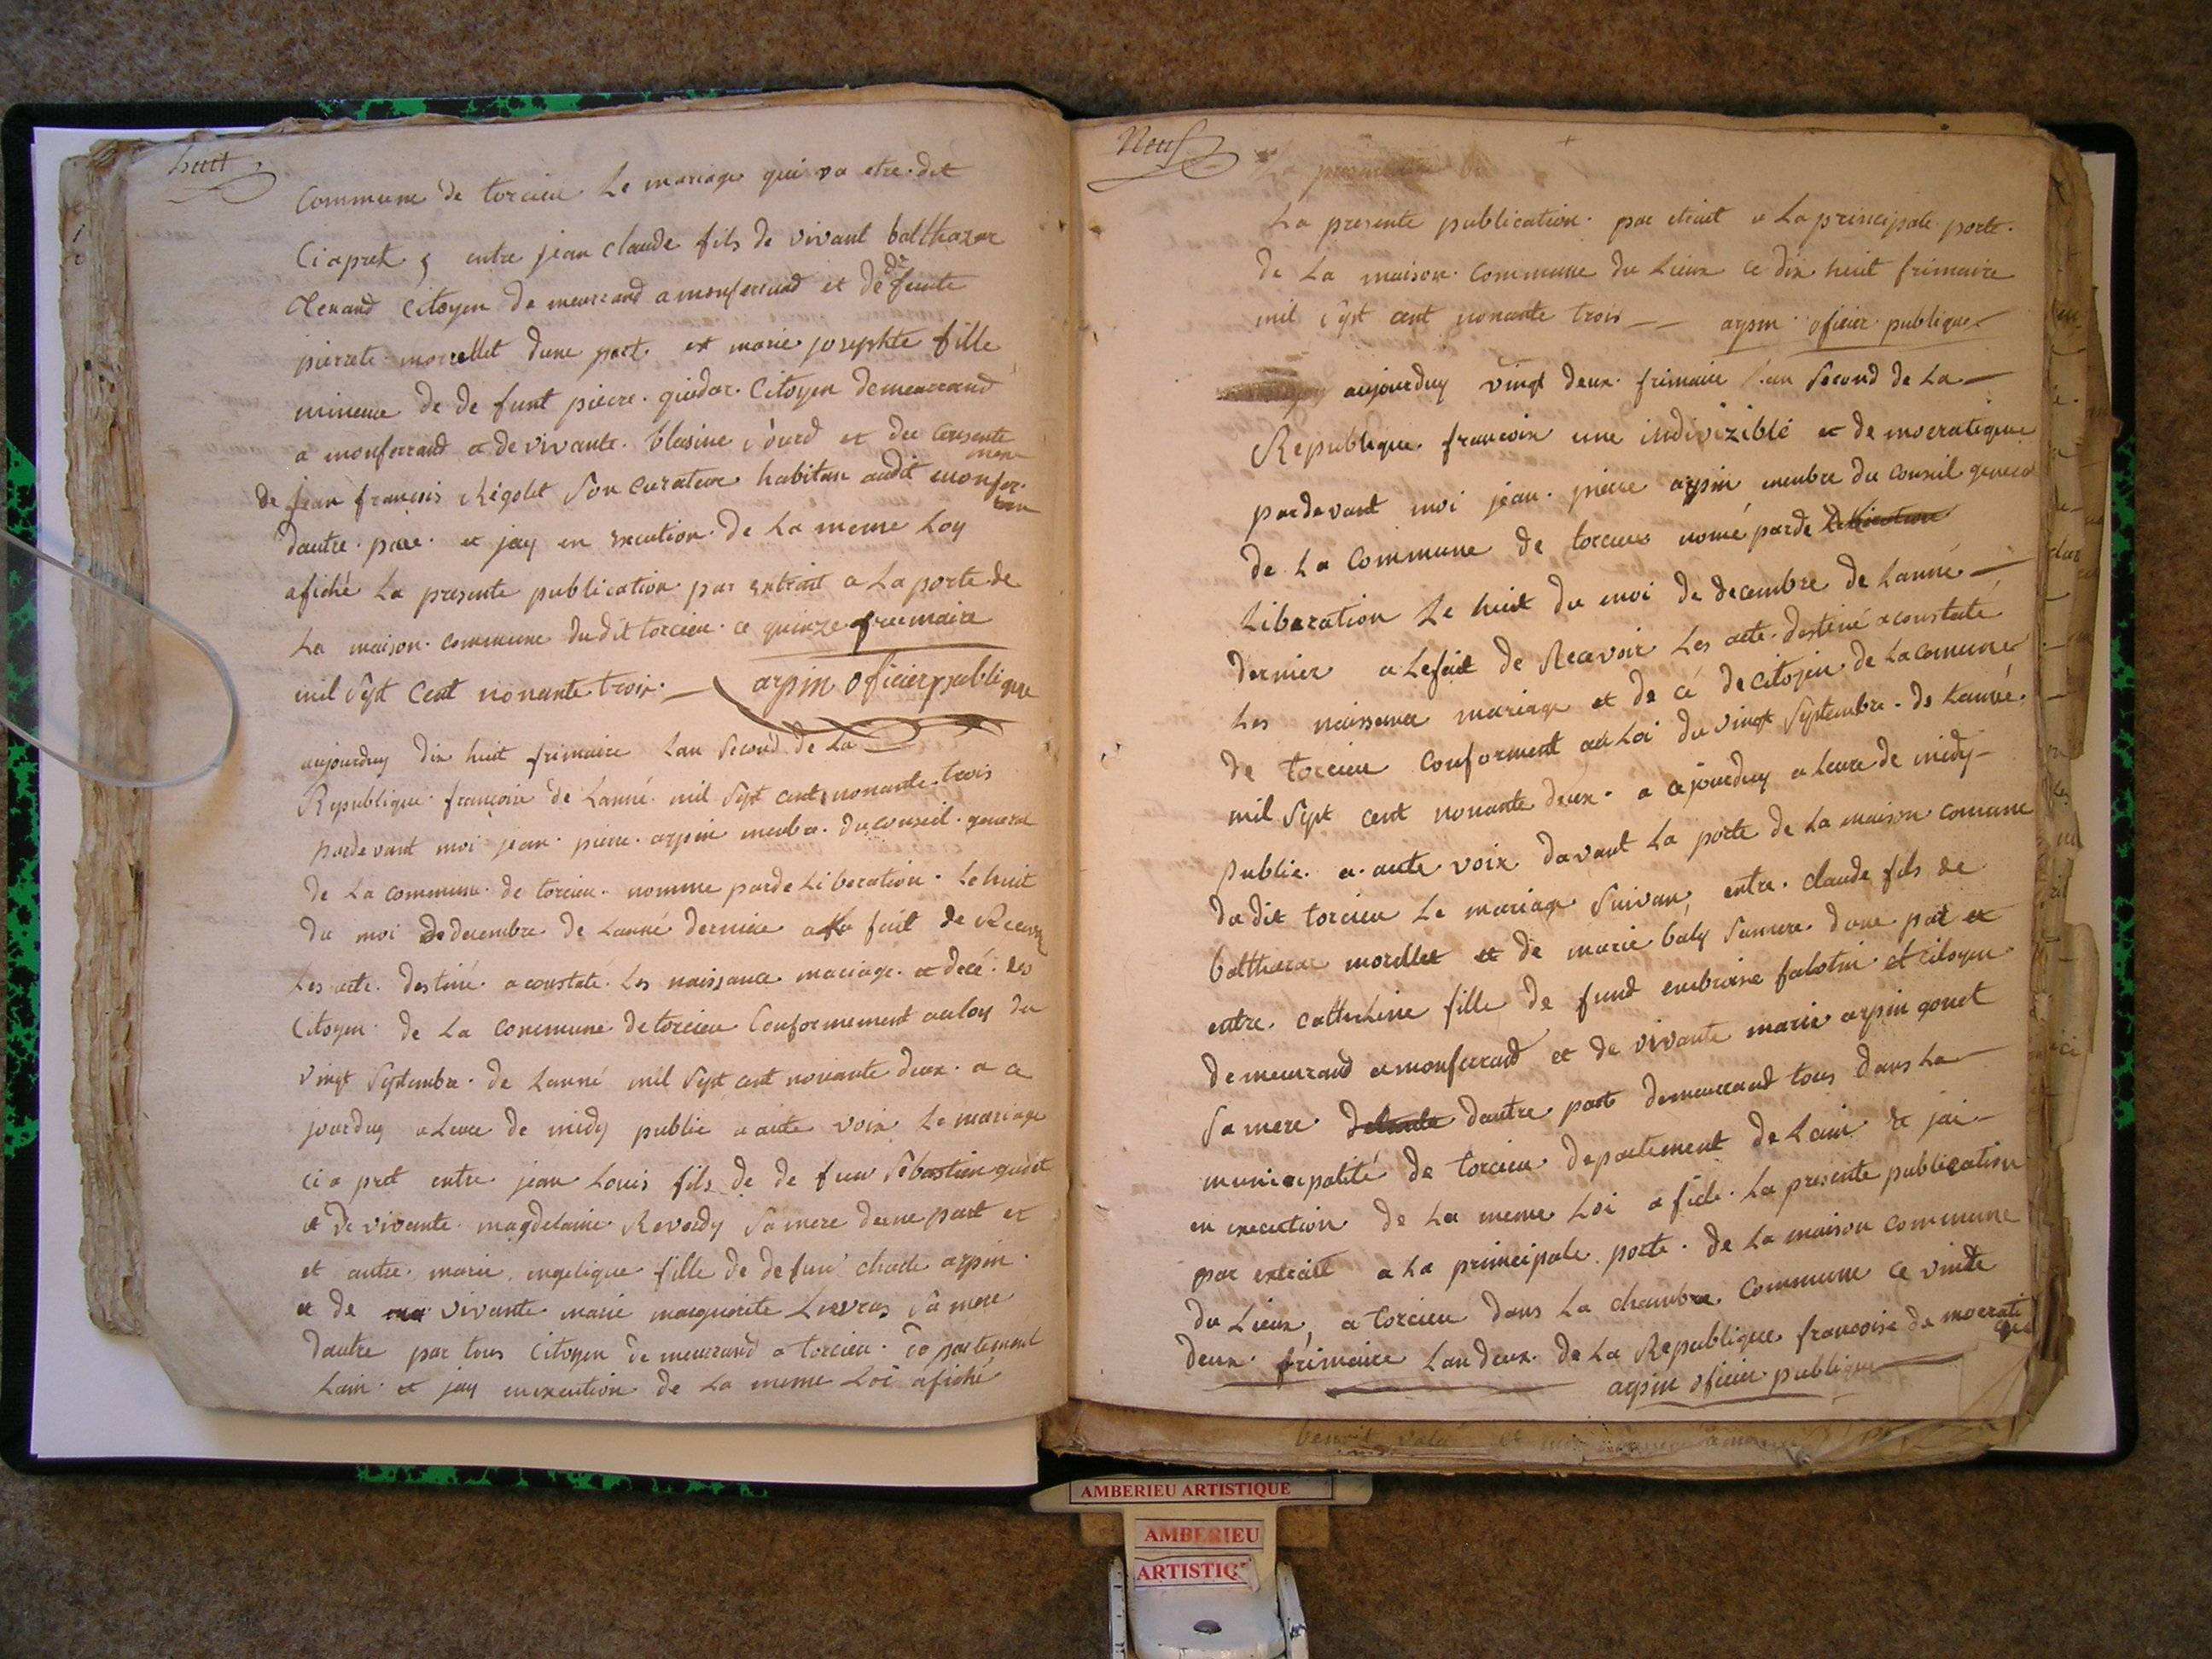 huit
Commune de torcieu Le mariage qui va etre dit
Ciapret entre jean claude fils de vivant balthazar
Clenand Citoyen de meurrand a monferrand et de de funte
pierrete morellet dune part et marie josephte fille
mineure de de funt pierre guidor Citoyen demeurrand
a monferrand et de vivante blasine et du consente
ment
de jean francois Rigolet Son curateur habitan audit monfer-
ran
dautre part et jay en execution de La meme Loy
afiché La presente publication par extrait a La porte de
La maison commune dudit torcieu ce quinze frimaire
mil Sept Cent nonante trois arpin oficier publique
aujourduy dix huit frimaire Lan Second de La
Republique françoise de Lanné mil Sept cent nonante trois
pardevant moi jean pierre arpin menbre du conseil general
de La commune de torcieu nomme par de Liberation Le huit
du moi de decembre de Lanné derniere a fait de Recevoir
Les acte destiné a constaté Les naissance mariage et decé des
Citoyen de La commune de torcieu Conformement au loy du
vingt Septembre de Lanné mil Sept cent nonante deux a ce
jourduy a Leure de midy publie a aute voix Le mariage
ci a pret entre jean Louis fils de de funt Sebastien guidot
et de vivante magdelaine Reverdy Sa mere dune part et
et autre marie angelique fille de de funt charle arpin
et de vivante marie marguerite Lievras Sa mere
dautre par tous Citoyen de meurrand a torcieu departement
Lain et jay en execution de La meme Loi afiché
Neuf
La presente publication par etrait a La principale porte
de La maison Commune du Lieux ce dix huit frimaire
mil Sept cent nonante trois arpin oficier publique
aujourduy vingt deux frimaire Lan Second de La
Republique francoise une indivizible et de mocratique
pardevant moi jean pierre arpin menbre du conseil general
de La Commune de torcieu nomé par de
Liberation Le huit du moi de decembre de Lanné
dernier a Lefait de Recevoir Les acte destiné a constaté
Les naissance mariage et de cé de citoyen de La comune
de torcieu Conforment au Loi du vingt Septembre de Lanné
mil Sept cent nonante deux a ce jourduy a Leure de midy
publie a aute voix davant La porte de La maison comune
du dit torcieu Le mariage Suivan entre claude fils de
balthazar morellet et de marie baly Sa mere dune part et
entre catherine fille de funt enbroise falotin et citoyen
demeurrand a monferrand et de vivante marie arpin gonet
Sa mere dautre part demeurrand tous dans La
municipalité de torcieu departement de Lain et jai
en execution de La meme Loi afiché La presente publication
par extrait a La principale porte de La maison commune
du Lieux, a torcieu dans La chambre Commune ce vinte
deux frimaire Lan deux de La Republique francoise de mocrati
que
arpin oficier publique
AMBERIEU ARTISTIQUE
AMBERIEU
ARTISTIQ